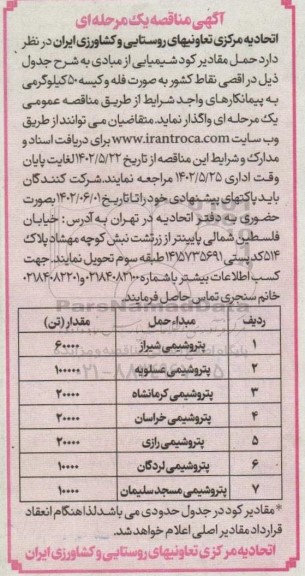 آگهی مناقصه یک مرحله ای
اتحادیه مرکزی تعاونیهای روستایی و کشاورزی ایران در نظر
دارد حمل مقادیر کود شیمیایی از مبادی به شرح جدول
ذیل در اقصی نقاط کشور به صورت فله و کیسه ۵۰ کیلوگرمی
به پیمانکارهای واجد شرایط از طریق مناقصه عمومی
یک مرحله ای واگذار نماید. متقاضیان می توانند از طریق
وب سایت www.irantroca.com برای دریافت اسناد و
مدارک و شرایط این مناقصه از تاریخ ۱۴۰۲/۵/۲۲ لغایت پایان
وقت اداری ۱۴۰۲/۵/۲۵ مراجعه نمایند. شرکت کنندگان
باید پاکتهای پیشنهادی خود را تا تاریخ ۱۴۰۲/۰۶/۰۱ بصورت
حضوری به دفتر اتحادیه در تهران به آدرس: خیابان
فلسطین شمالی پایینتر از زرتشت نبش کوچه مهشاد پلاک
۵۱۴ کدپستی ۱۴۱۵۷۳۵۶۹۱ طبقه سوم تحویل نمایند. جهت
کسب اطلاعات بیشتر با شماره ۰۲۱۸۴۰۸۲۱۰۰ و ۰۲۱۸۴۰۸۲۲۰۱
خانم سنجری تماس حاصل فرمایند
ردیف مبداء حمل مقدار (تن)
۱ پتروشیمی شیراز ۶۰۰۰۰
۲ پتروشیمی عسلویه ۱۰۰۰۰۰
۳ پتروشیمی کرمانشاه ۲۰۰۰۰
۴ پتروشیمی خراسان ۲۰۰۰۰
۵ پتروشیمی رازی ۲۰۰۰۰
۶ پتروشیمی لردگان ۱۰۰۰۰
۷ پتروشیمی مسجد سلیمان ۱۰۰۰۰
*مقادیر کود در جدول حدودی می باشد لذا هنگام انعقاد
قرارداد مقادیر اصلی اعلام خواهد شد.
اتحادیه مرکزی تعاونیهای روستایی و کشاورزی ایران